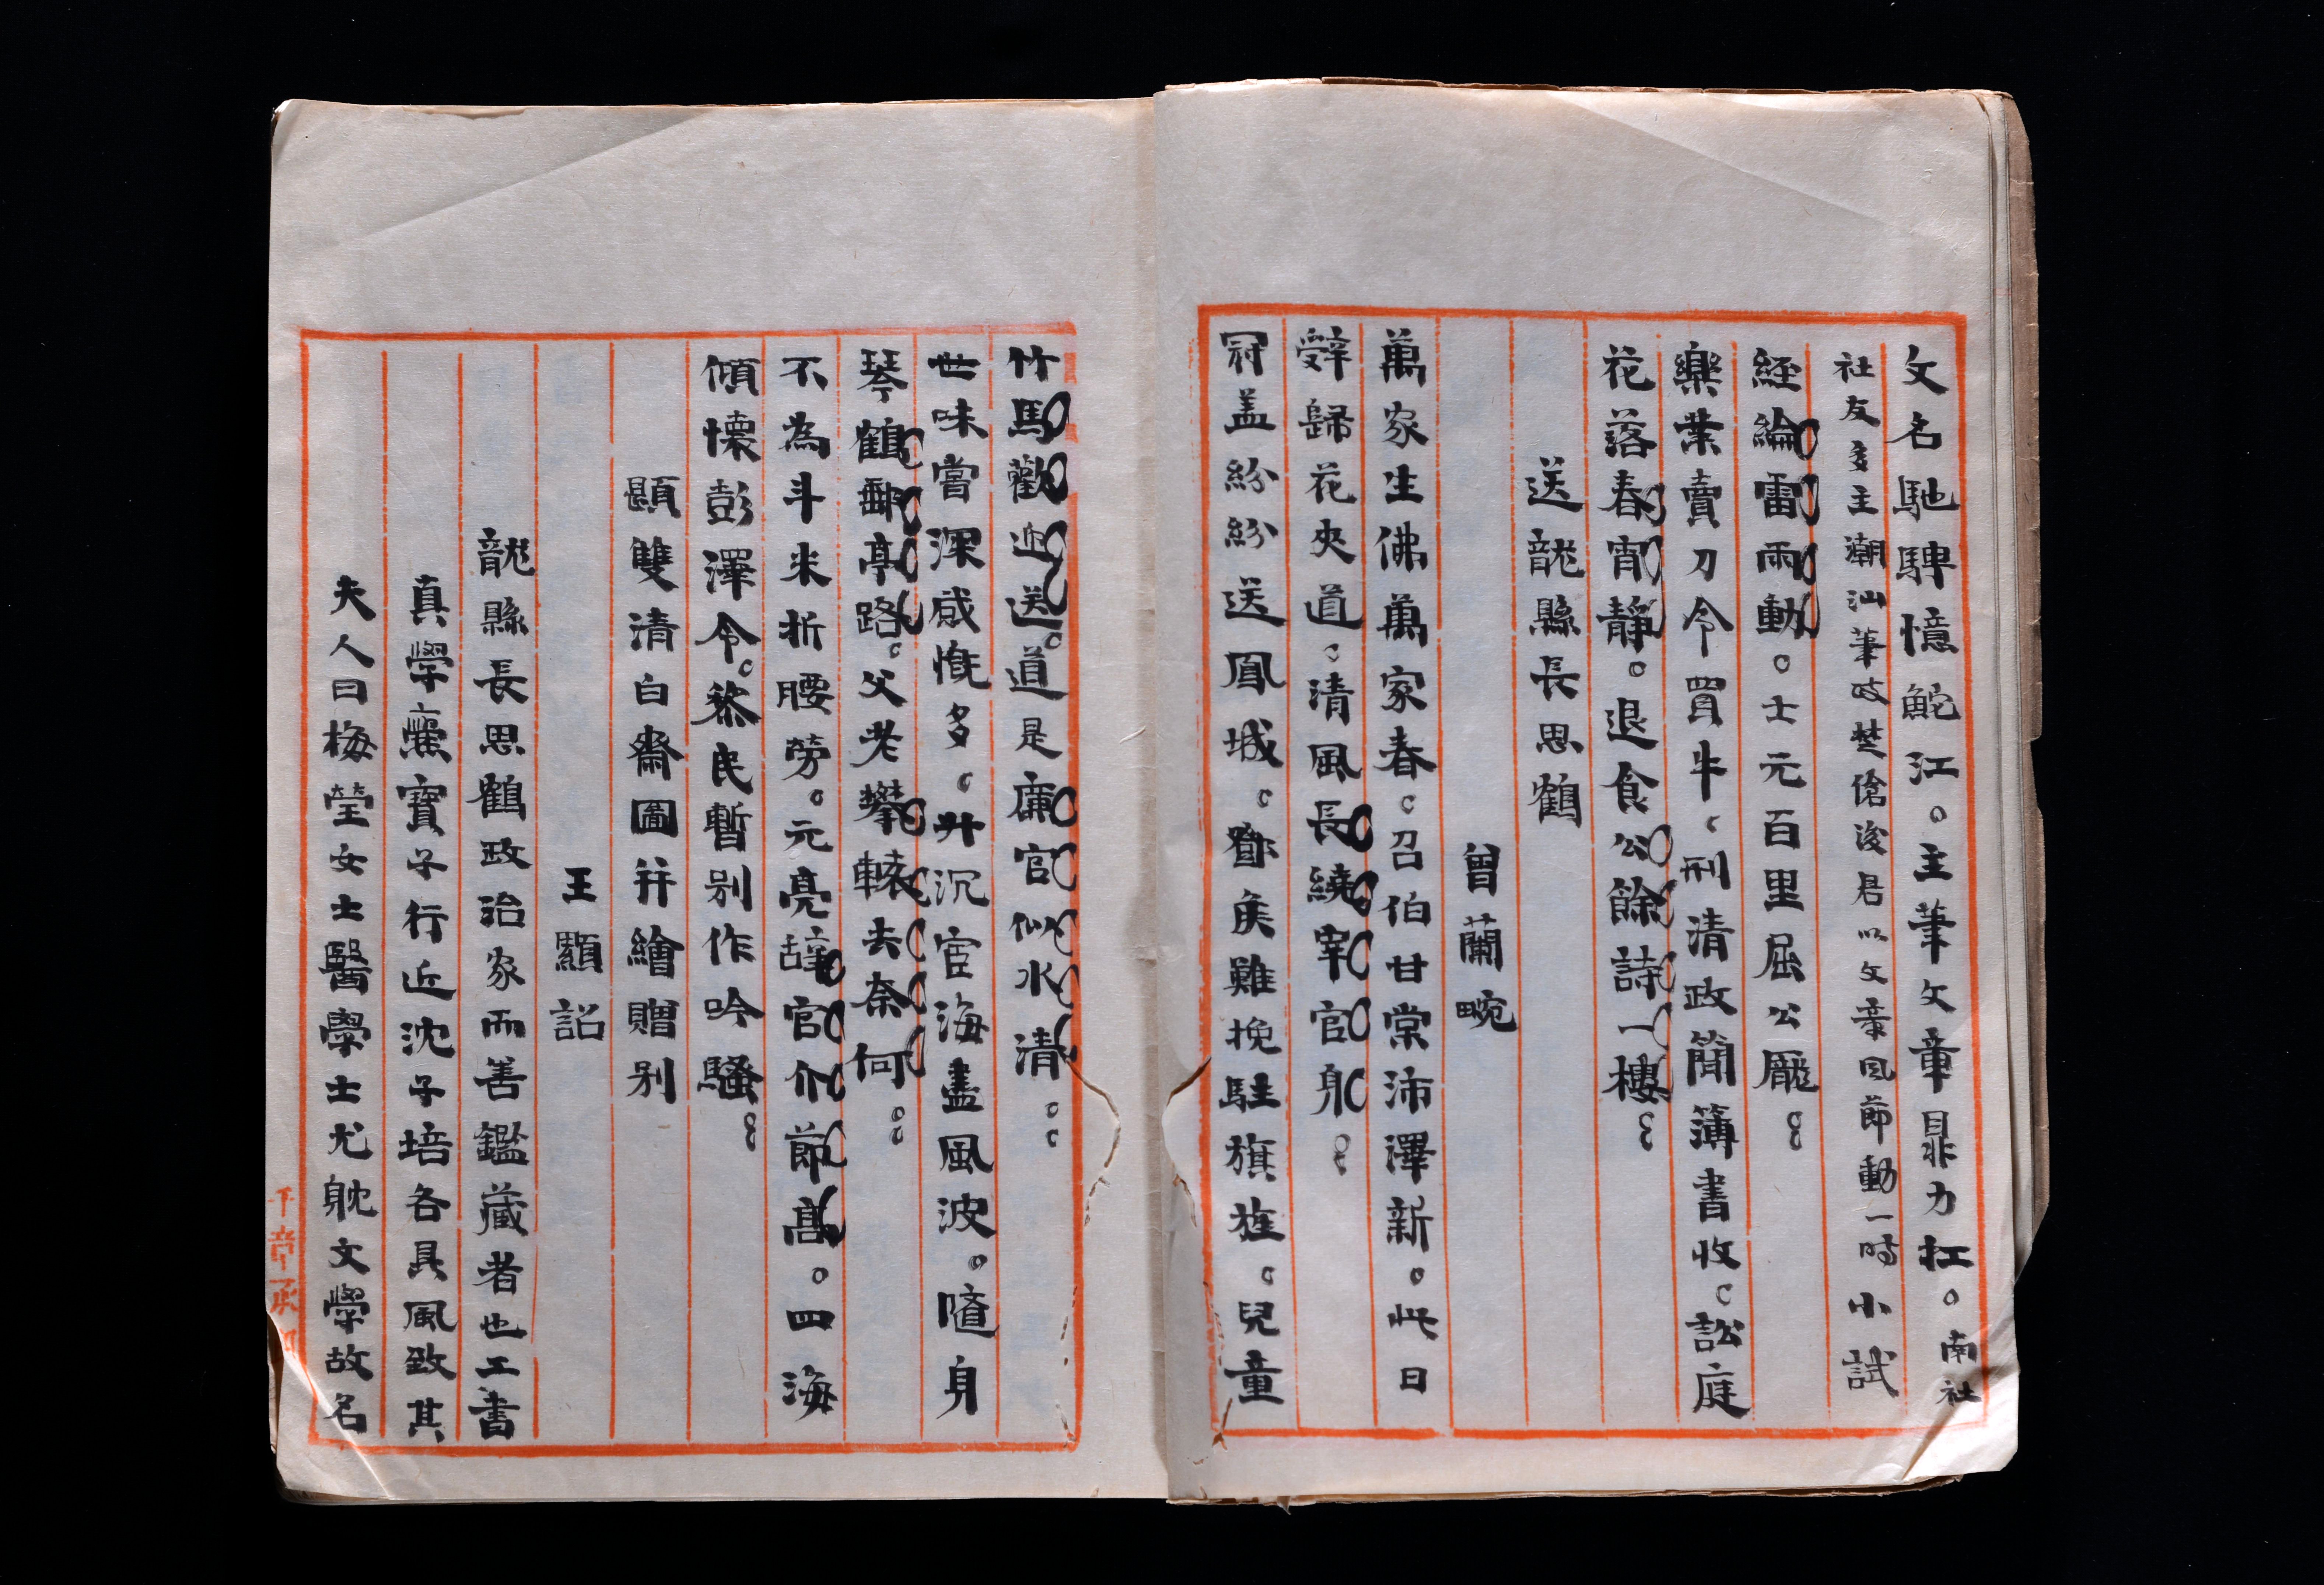 文名馳騁憶鮀江。主筆文章鼎力扛。南社
社友多主潮汕筆政楚傖浚君以文章風節動一時小試
經綸雷雨動。士元百里屈公龐。
樂業賣刀令買牛。刑清政簡簿書收。訟庭
花落春宵靜。退食公餘詩一樓。
送龍縣長思鶴
曾蘭畹
萬家生佛萬家春。召伯甘棠沛澤新。此日
辭歸花夾道。清風長繞宰官身。
冠盖紛紛送鳳城。鄧侯難挽駐旗旌。兒童
竹馬歡迎送。道是廉官似水清。
世味嘗深感慨多。升沉宦海盡風波。隨身
琴鶴郵亭路。父老攀轅去奈何。
不為斗米折腰勞。元亮辭官介節高。四海
傾懷彭澤令。黎民暫別作吟騷。
題雙清白齋圖并繪贈別
王顯詔
龍縣長思鶴政治家而善鑑藏者也工書
真學寶子行近沈子培各具風致其
夫人曰梅瑩女士醫學士尤躭文學故名